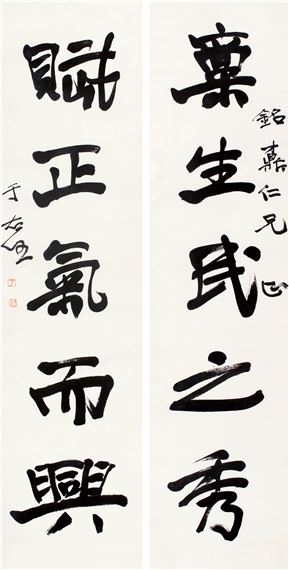 銘 仁兄 正
稟生民之秀
賦正氣而興
于右任